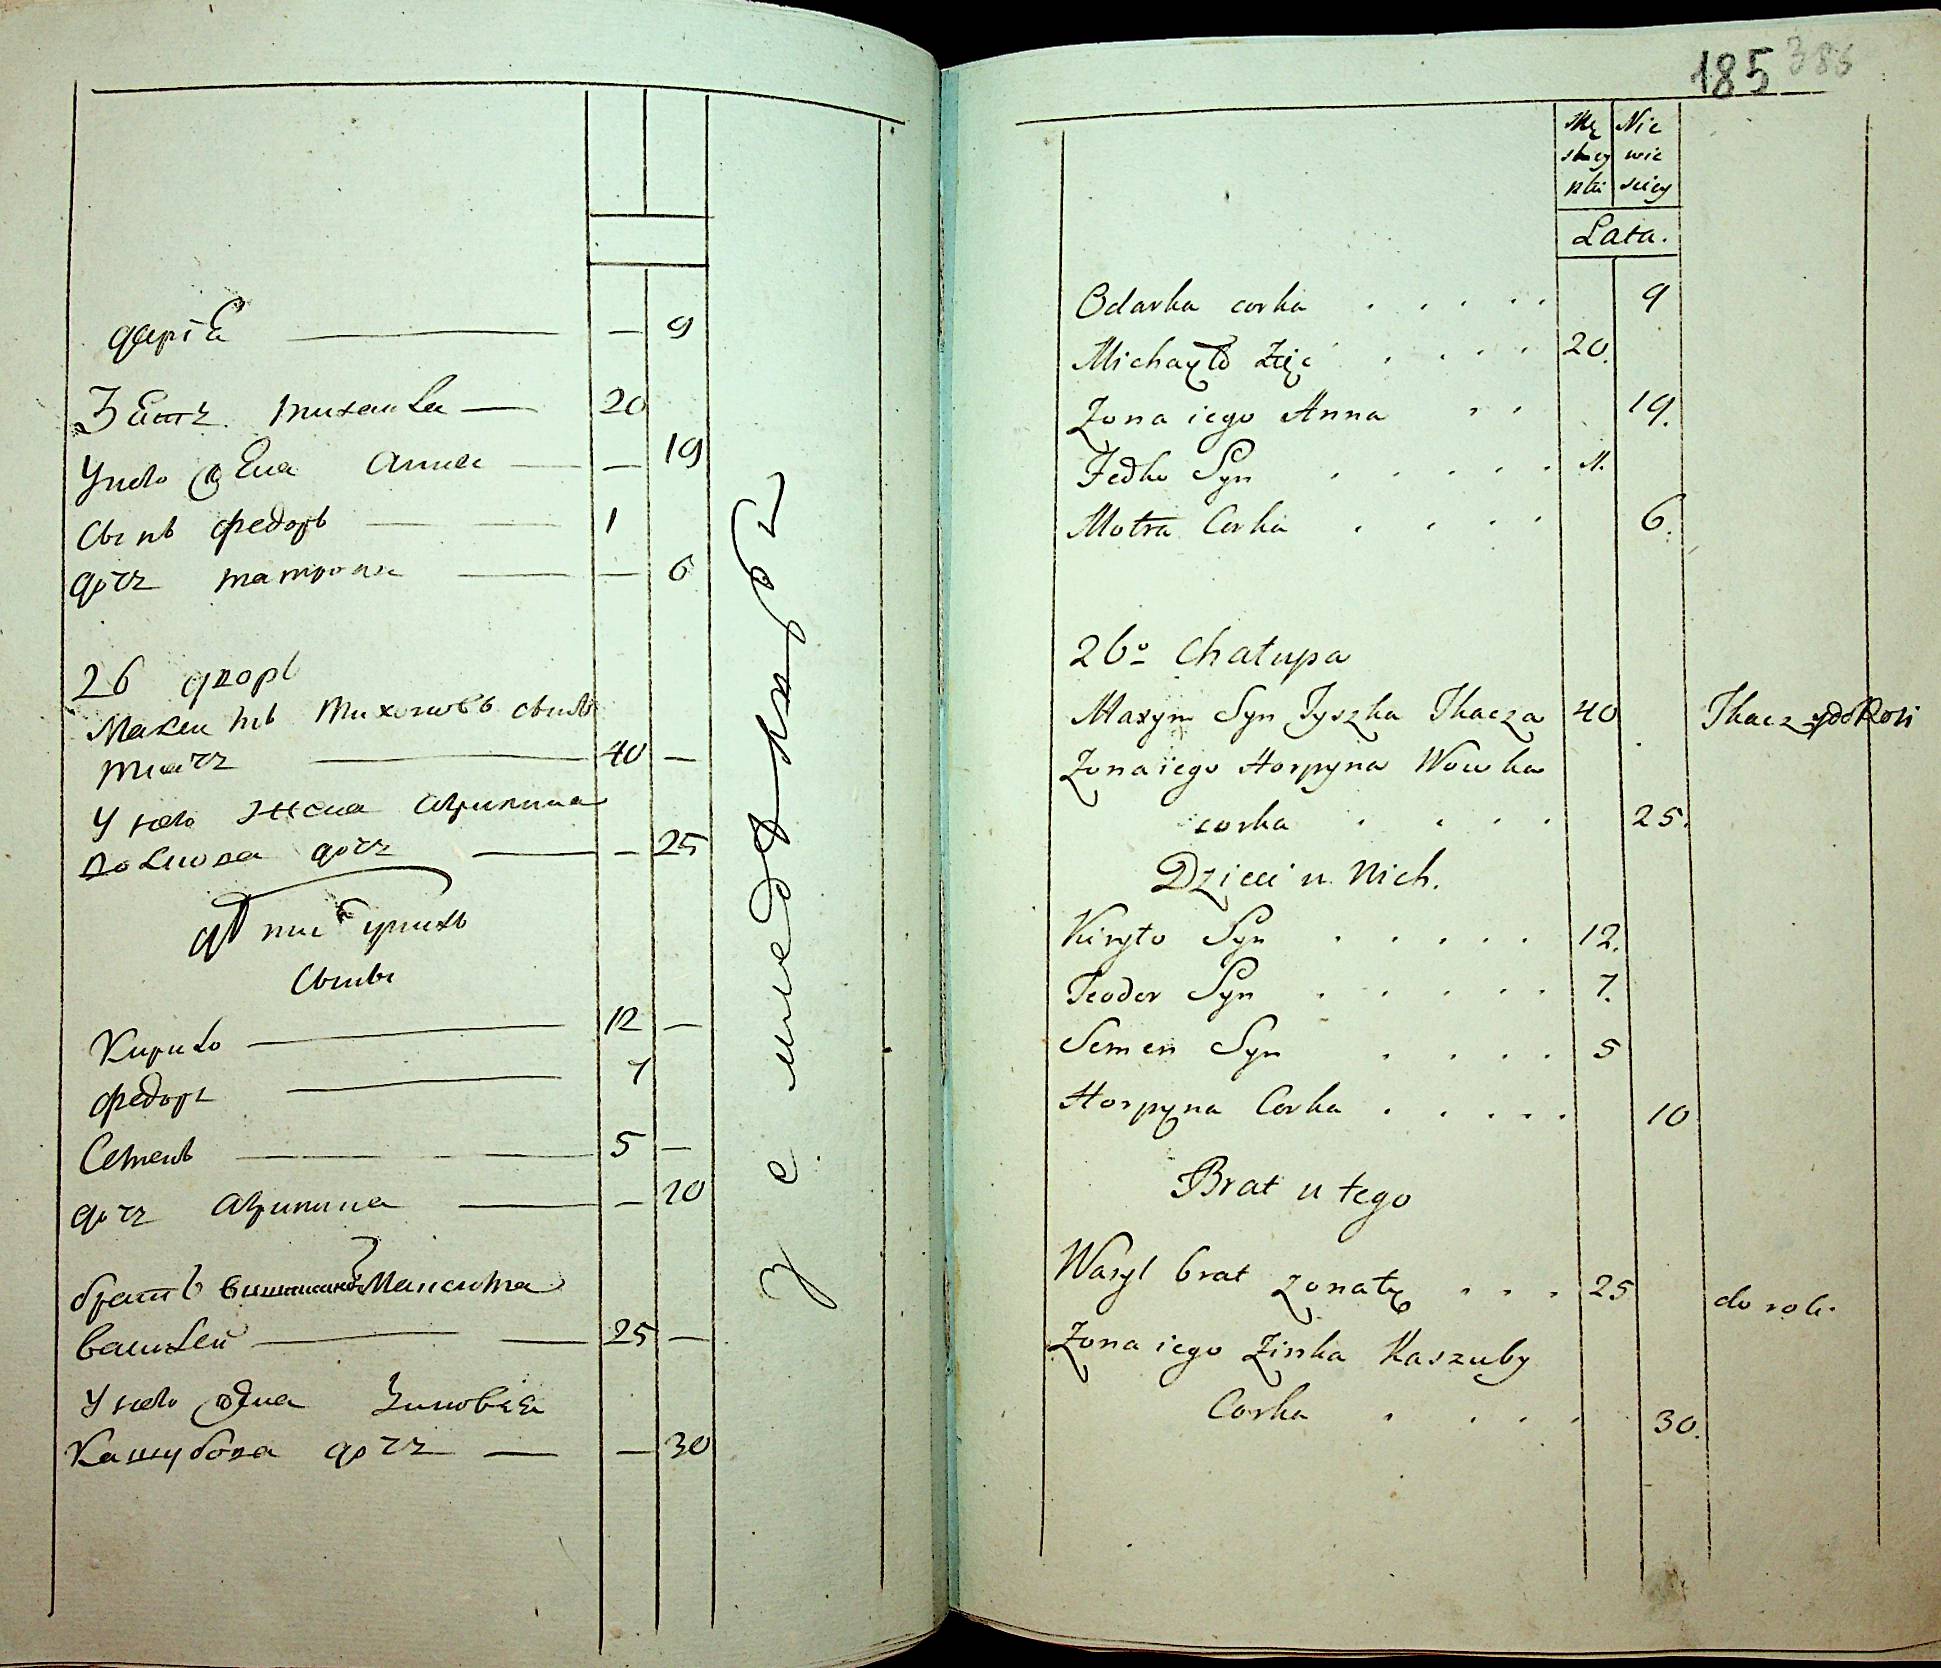 дарїа — 9
Зять михаила 20
У него жена анна — 19
Сынъ федоръ 1
дочь матрона — 6
26 дворъ
Максимъ Тихоновъ сынъ
ткачь 40 —
У него жена агрипина
дочь — 25
дѣти ихъ
Сыны
Кирило 12 —
федоръ 7
Семенъ 5 —
дочь агрипина — 10
братъ Максима
василей 25 —
У него жена Зиновия
Кашубова дочь — 30
185 386
Mę Nie
skey wie
płci sciey
Lata.
Odarka corka . . . . . 9
Michayło Zięć . . . . 20.
Zona iego Anna . . 19.
Fedko Syn . . . . . 1.
Motra Corka . . . . 6.
26o Chałupa
Maxym Syn Tyszka Tkacza 40 Tkacz y do Roli
Zona iego Horpyna Wowka
corka . . . . 25.
Dzieci u Nich.
Kiryło Syn . . . . . 12.
Teodor Syn . . . . . 7.
Semen Syn . . . . 5
Horpyna Corka . . . . . 10
Brat u tego
Wasyl brat zonaty . . . 25 do roli.
Zona iego Zinka Kaszuby
Corka . . . . 30.